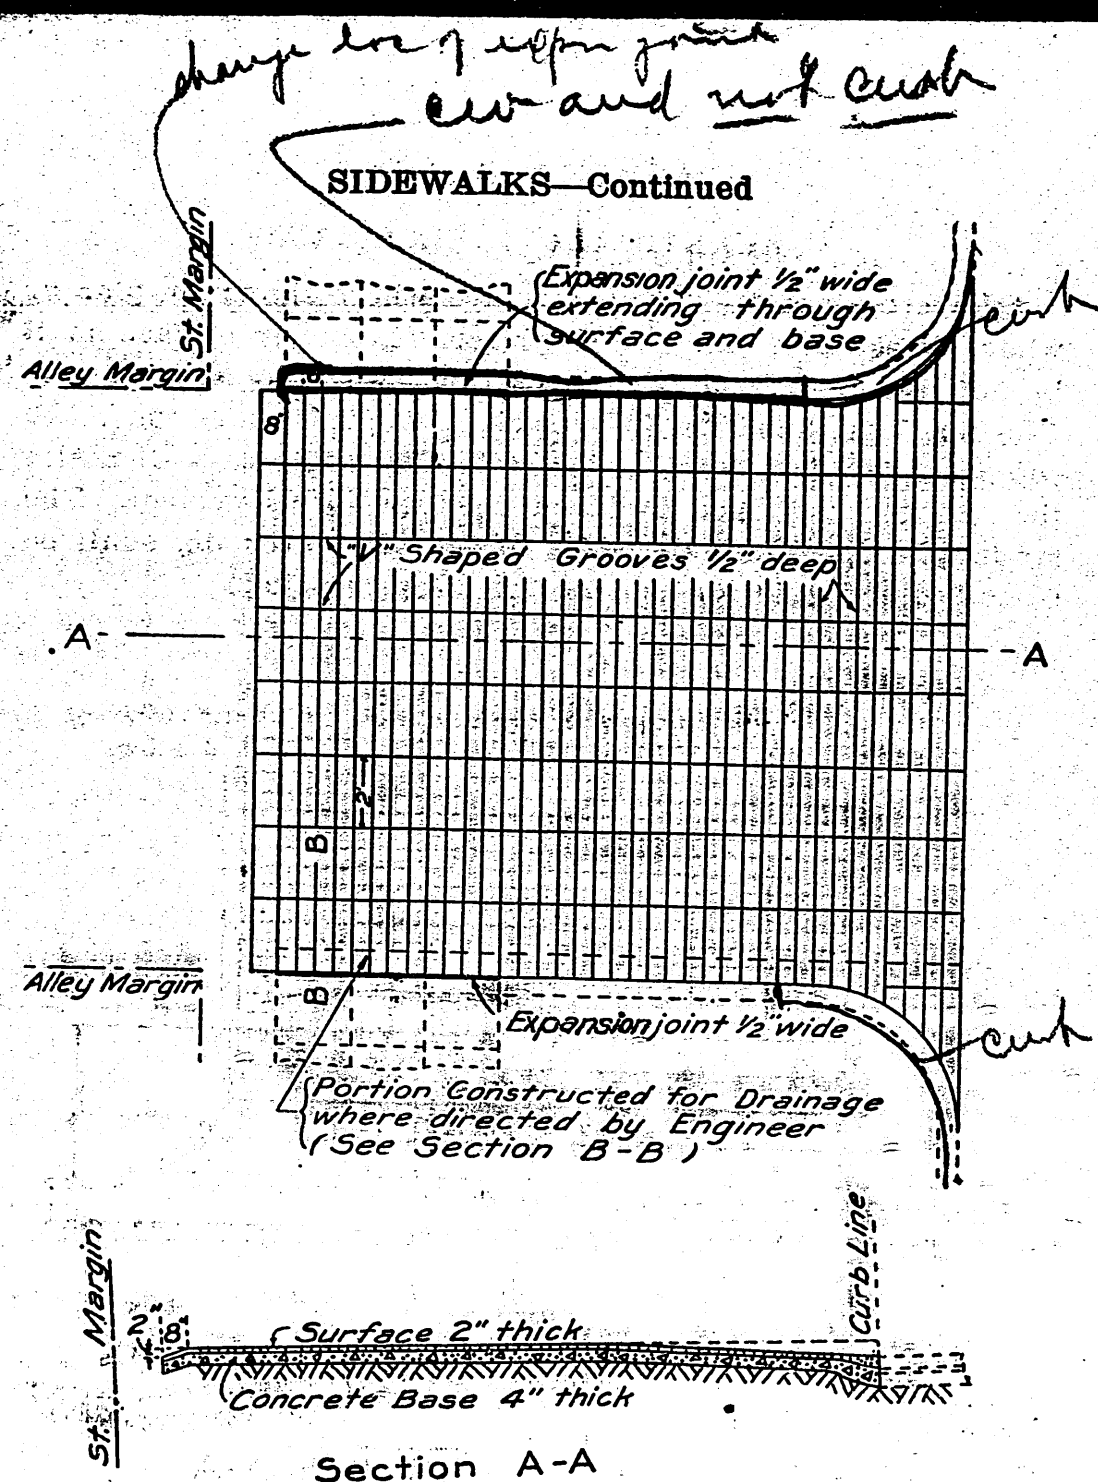 change loc of expn joint
and not curb
SIDEWALKS—Continued
St. Margin
Expansion joint 1/2" wide
extending through
surface and base
curb
Alley Margin
8"
8"
"V" Shaped Grooves 1/2" deep
A
A
2'
B
Alley Margin
B
Expansion joint 1/2" wide
curb
Portion Constructed for Drainage
where directed by Engineer
(See Section B-B)
St. Margin
Curb Line
2"
8"
Surface 2" thick
Concrete Base 4" thick
Section A-A